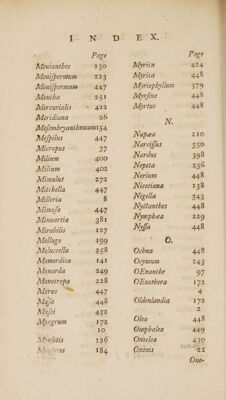 INDEX.
Page
Menianthes 130
Menispermum 223
Menispermum 447
Mentha 251
Mercurialis 422
Meridiana 26
Mesembryanthemum 154
Mespilus 447
Micropus 37
Milium 400
Milium 402
Mimulus 272
Mitchella 447
Milleria 8
Mimosa 447
Minuartia 381
Mirabilis 127
Mollugo 199
Moluccella 258
Momordica 141
Monarda 249
Monotropa 228
Morus 447
Musa 448
Musci 432
Myagrum 172
10
Myosotis 136
Myosurus 184
Page
Myrica 424
Myrica 448
Myriophyllum 379
Myrsine 448
Myrtus 448
N.
Napæa 210
Narcissus 350
Nardus 398
Nepeta 256
Nerium 448
Nicotiana 138
Nigella 343
Nyctanthes 448
Nymphæa 229
Nyssa 448
O.
Ochna 448
Ocymum 243
OEnanthe 97
OEnothera 172
4
Oldenlandia 172
2
Olea 448
Omphalea 449
Onoclea 430
Ononis 22
Ono-